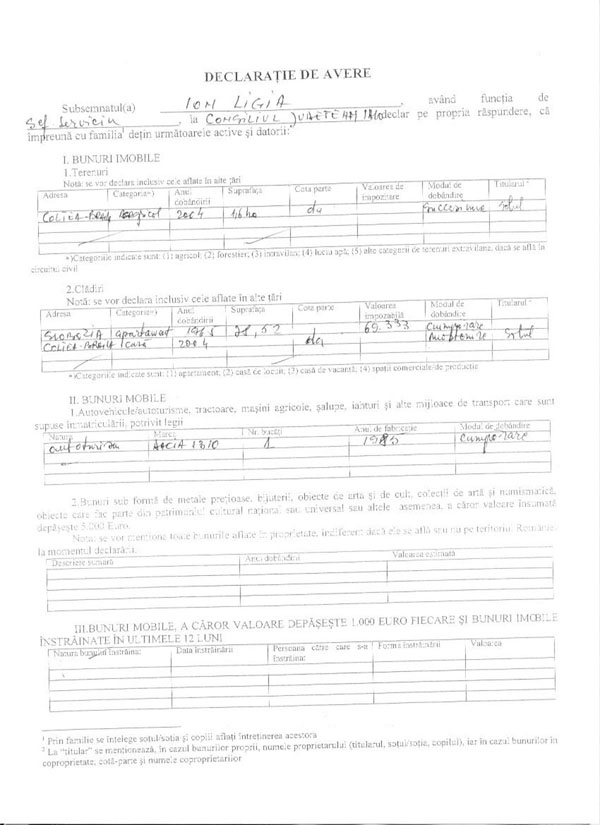 DECLARAȚIE DE AVERE
Subsemnatul(a) ION LIGIA, având funcția de
Șef serviciu, la CONSILIUL declar pe propria răspundere, că
împreună cu familia¹ dețin următoarele active și datorii:
I. BUNURI IMOBILE
1.Terenuri
Notă: se vor declara inclusiv cele aflate în alte țări
Adresa Categoria*) Anul dobândirii Suprafața Cota parte Valoarea de impozitare Modul de dobândire Titularul ²
2004 da Succesiune Soțul
*)Categoriile indicate sunt: (1) agricol; (2) forestier; (3) intravilan; (4) luciu apă; (5) alte categorii de terenuri extravilane, dacă se află în
circuitul civil
2.Clădiri
Notă: se vor declara inclusiv cele aflate în alte țări
Adresa Categoria*) Anul dobândirii Suprafața Cota parte Valoarea impozabilă Modul de dobândire Titularul ²
SLOBOZIA apartament 69.333 Cumpărare
casă 2004 da Soțul
*)Categoriile indicate sunt: (1) apartament; (2) casă de locuit; (3) casă de vacanță; (4) spații comerciale/de producție
II. BUNURI MOBILE
1.Autovehicule/autoturisme, tractoare, mașini agricole, șalupe, iahturi și alte mijloace de transport care sunt
supuse înmatriculării, potrivit legii
Natura Marca Nr. bucăți Anul de fabricație Modul de dobândire
autoturism DACIA 1310 1 Cumpărare
2.Bunuri sub formă de metale prețioase, bijuterii, obiecte de artă și de cult, colecții de artă și numismatică,
obiecte care fac parte din patrimoniul cultural național sau universal sau altele asemenea, a căror valoare însumată
depășește 5.000 Euro.
Notă: se vor menționa toate bunurile aflate în proprietate, indiferent dacă ele se află sau nu pe teritoriul României
la momentul declarării.
Descriere sumară Anul dobândirii Valoarea estimată
III.BUNURI MOBILE, A CĂROR VALOARE DEPĂȘEȘTE 1.000 EURO FIECARE ȘI BUNURI IMOBILE
ÎNSTRĂINATE ÎN ULTIMELE 12 LUNI
Natura bunului înstrăinat Data înstrăinării Persoana către care s-a înstrăinat Forma înstrăinării Valoarea
¹ Prin familie se înțelege soțul/soția și copiii aflați întreținerea acestora
² La "titular" se menționează, în cazul bunurilor proprii, numele proprietarului (titularul, soțul/soția, copilul), iar în cazul bunurilor în
coproprietate, cotă-parte și numele coproprietarilor